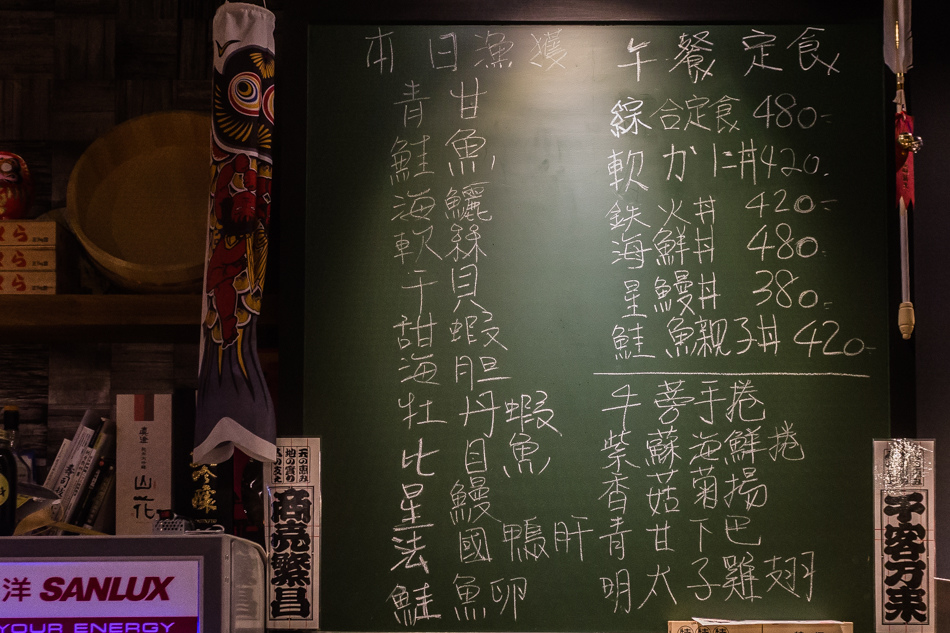 本日漁獲
青甘
鮭魚
海鱺
軟絲
干貝
甜蝦
海胆
牡丹蝦
比目魚
星鰻
法國鴨肝
鮭魚卵
午餐定食
綜合定食 480.-
軟かに丼 420.
鉄火丼 420.-
海鮮丼 480.
星鰻丼 380.-
鮭魚親子丼 420.-
牛蒡手捲
紫蘇海鮮捲
香菇菊揚
青甘下巴
明太子雞翅
商売繁昌
千客万来
山花
洋 SANLUX
YOUR ENERGY